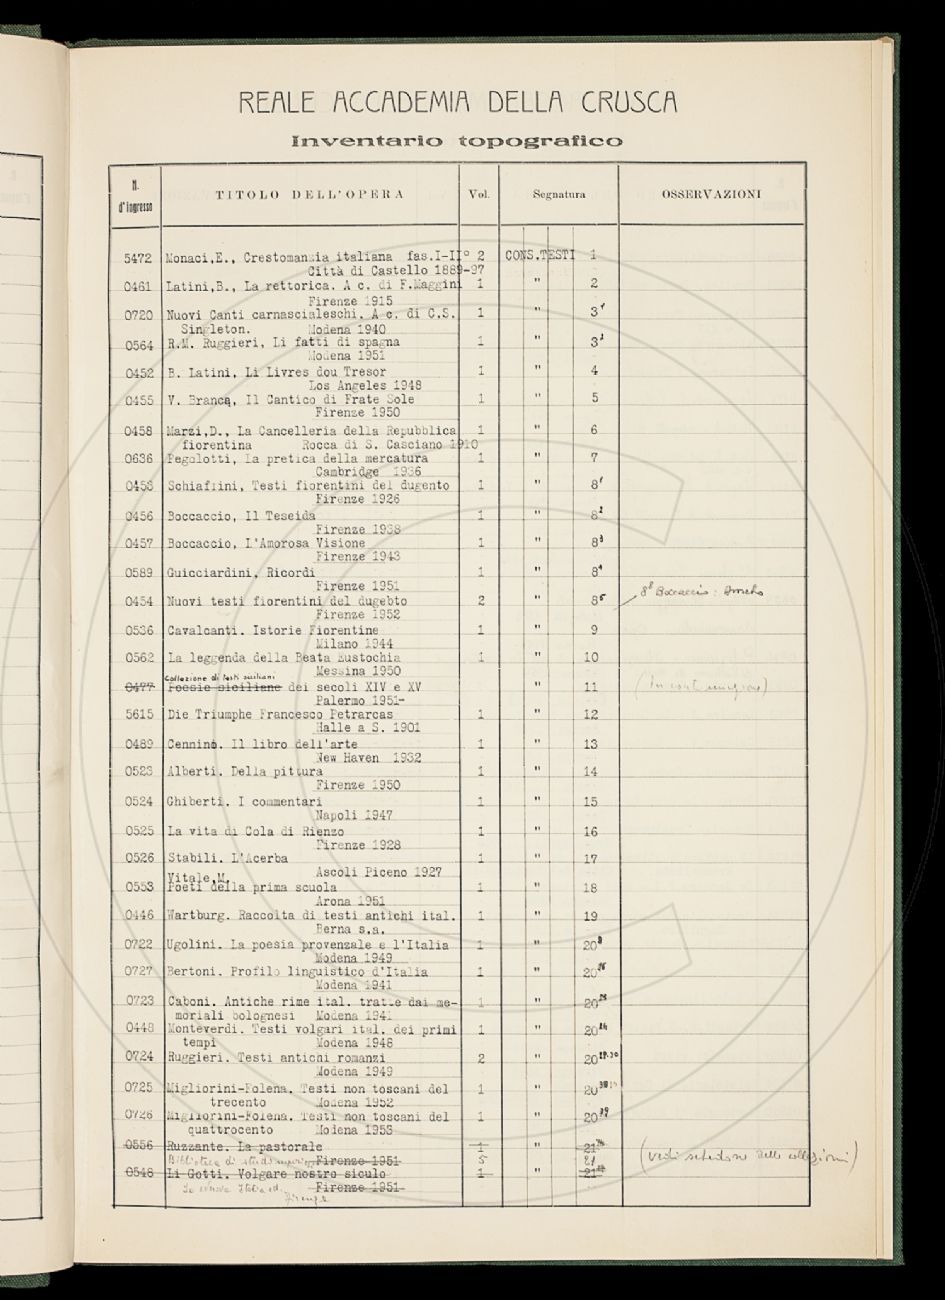 REALE ACCADEMIA DELLA CRUSCA
Inventario topografico
N. d'ingresso TITOLO DELL'OPERA Vol. Segnatura OSSERVAZIONI
5472 Monaci,E., Crestomanzia italiana fas.I-II° 2 CONS.TESTI 1
Città di Castello 1889-97
0461 Latini,B., La rettorica. A c. di F.Maggini 1 " 2
Firenze 1915
0720 Nuovi Canti carnascialeschi. A c. di C.S. 1 " 3¹
Singleton. Modena 1940
0564 R.M. Ruggieri, Li fatti di spagna 1 " 3²
Modena 1951
0452 B. Latini, Li Livres dou Tresor 1 " 4
Los Angeles 1948
0455 V. Branca, Il Cantico di Frate Sole 1 " 5
Firenze 1950
0458 Marzi,D., La Cancelleria della Repubblica 1 " 6
fiorentina Rocca di S. Casciano 1910
0636 Pegolotti, La pretica della mercatura 1 " 7
Cambridge 1936
0453 Schiaffini, Testi fiorentini del dugento 1 " 8¹
Firenze 1926
0456 Boccaccio, Il Teseida 1 " 8²
Firenze 1938
0457 Boccaccio, L'Amorosa Visione 1 " 8³
Firenze 1943
0589 Guicciardini, Ricordi 1 " 8⁴
Firenze 1951
0454 Nuovi testi fiorentini del dugebto 2 " 8⁵ Boccaccio:
Firenze 1952
0536 Cavalcanti. Istorie Fiorentine 1 " 9
Milano 1944
0562 La leggenda della Beata Eustochia 1 " 10
Messina 1950
Collezione di testi siciliani
0477 Poesie siciliane dei secoli XIV e XV " 11 (In continuazione)
Palermo 1951-
5615 Die Triumphe Francesco Petrarcas 1 " 12
Halle a S. 1901
0489 Cennino. Il libro dell'arte 1 " 13
New Haven 1932
0523 Alberti. Della pittura 1 " 14
Firenze 1950
0524 Ghiberti. I commentari 1 " 15
Napoli 1947
0525 La vita di Cola di Rienzo 1 " 16
Firenze 1928
0526 Stabili. L'Acerba 1 " 17
Ascoli Piceno 1927
Vitale,M.
0553 Poeti della prima scuola 1 " 18
Arona 1951
0446 Wartburg. Raccolta di testi antichi ital. 1 " 19
Berna s.a.
0722 Ugolini. La poesia provenzale e l'Italia 1 " 20
Modena 1949
0727 Bertoni. Profilo linguistico d'Italia 1 " 20
Modena 1941
0723 Caboni. Antiche rime ital. tratte dai me- 1 " 20
moriali bolognesi Modena 1941
0448 Monteverdi. Testi volgari ital. dei primi 1 " 20
tempi Modena 1948
0724 Ruggieri. Testi antichi romanzi 2 " 20²⁹⁻³⁰
Modena 1949
0725 Migliorini-Folena. Testi non toscani del 1 " 20
trecento Modena 1952
0726 Migliorini-Folena. Testi non toscani del 1 " 20³⁹
quattrocento Modena 1953
0556 Ruzzante. La pastorale 1 " 21 (vedi schedone delle collezioni)
Biblioteca di studi superiori Firenze 1951 5 21
0548 Li Gotti. Volgare nostro siculo 1 " 21
La nuova Italia ed. Firenze 1951
Firenze